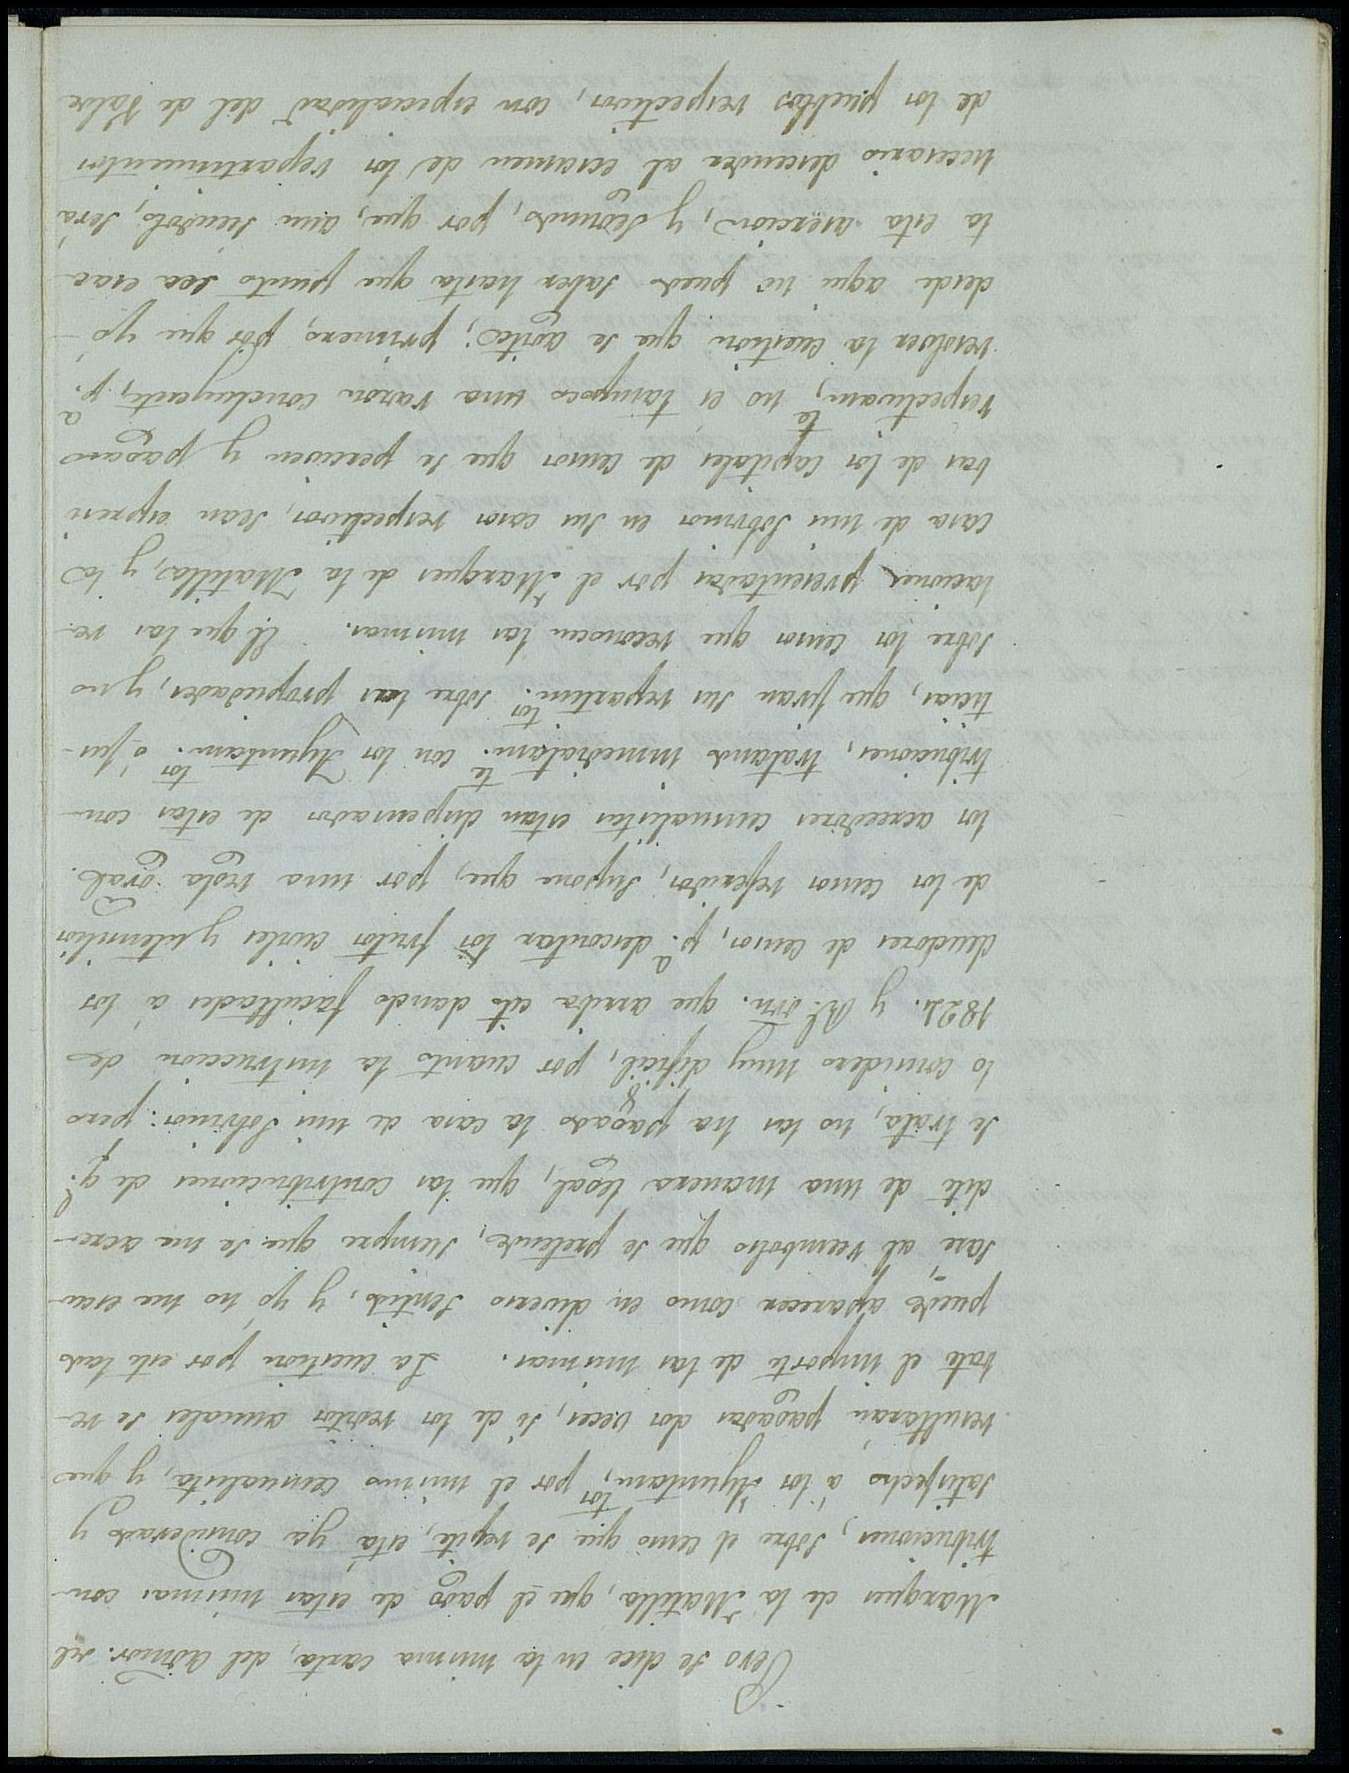 Pero se dice en la misma carta, del Admor. del
Marques de la Matilla, que el pago de estas mismas con-
tribuciones, sobre el censo que se repite, está ya considerado y
satisfecho á los Ayuntam.tos por el mismo censualista, y que
resultarán pagadas dos veces, si de los reditos anuales se re-
bate el importe de las mismas. La cuestion por este lado
puede aparecer como en diverso sentido, y yó no me escu-
saré, al reembolso que se pretende, siempre que se me acre-
dite de una manera legal, que las contribuciones de q.e
se trata, no las ha pagado la casa de mis Sobrinos: pero
lo considero muy dificil, por cuanto la instruccion de
1824. y Rl. orn. que arriba cité dando facultades á los
deudores de censos, p.a descontar los frutos civiles y utensilios
de los censos referidos, supone que, por una regla gral.
los acreedores censualistas estan dispensados de estas con-
tribuciones, tratando inmediatam.te con los Ayuntam.tos ó jus-
ticias, que giran sus repartim.tos sobre las propiedades, y no
sobre los censos que reconocen las mismas. El que las re-
laciones presentadas por el Marques de la Matilla, y la
casa de mis Sobrinos en sus casos respectivos, sean espresi
vas de los capitales de censos que se perciven y pagan
respectivam.te, no es tampoco una razon concluyente, p.a
resolver la cuestion que se agita; primero, por que yó
desde aqui nó puedo saber hasta que punto sea esac-
ta esta asercion, y segundo, por que, aun siendolo, será
necesario descender al ecsamen de los repartimientos
de los pueblos respectivos, con especialidad del de Valde